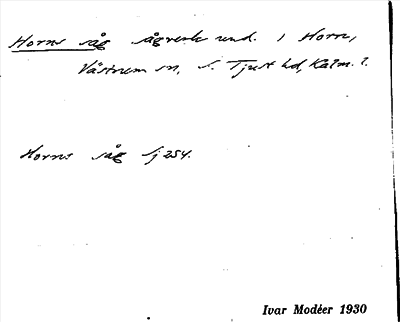 Horns såg sågverk und. 1 Horn,
Västrum sn, S. Tjust hd, Kalm. l.
Horns såg Sj 254.
Ivar Modéer 1930